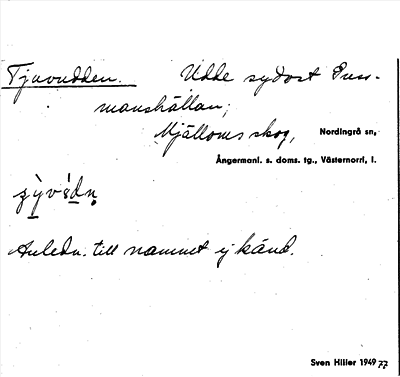 Tjuvudden. Udde sydost Puss-
manshällan;
Mjälloms skog, Nordingrå sn,
Ångermanl. s. doms. tg., Västernorrl, l.
Anledn. till namnet ej känd.
Sven Hiller 1949 77